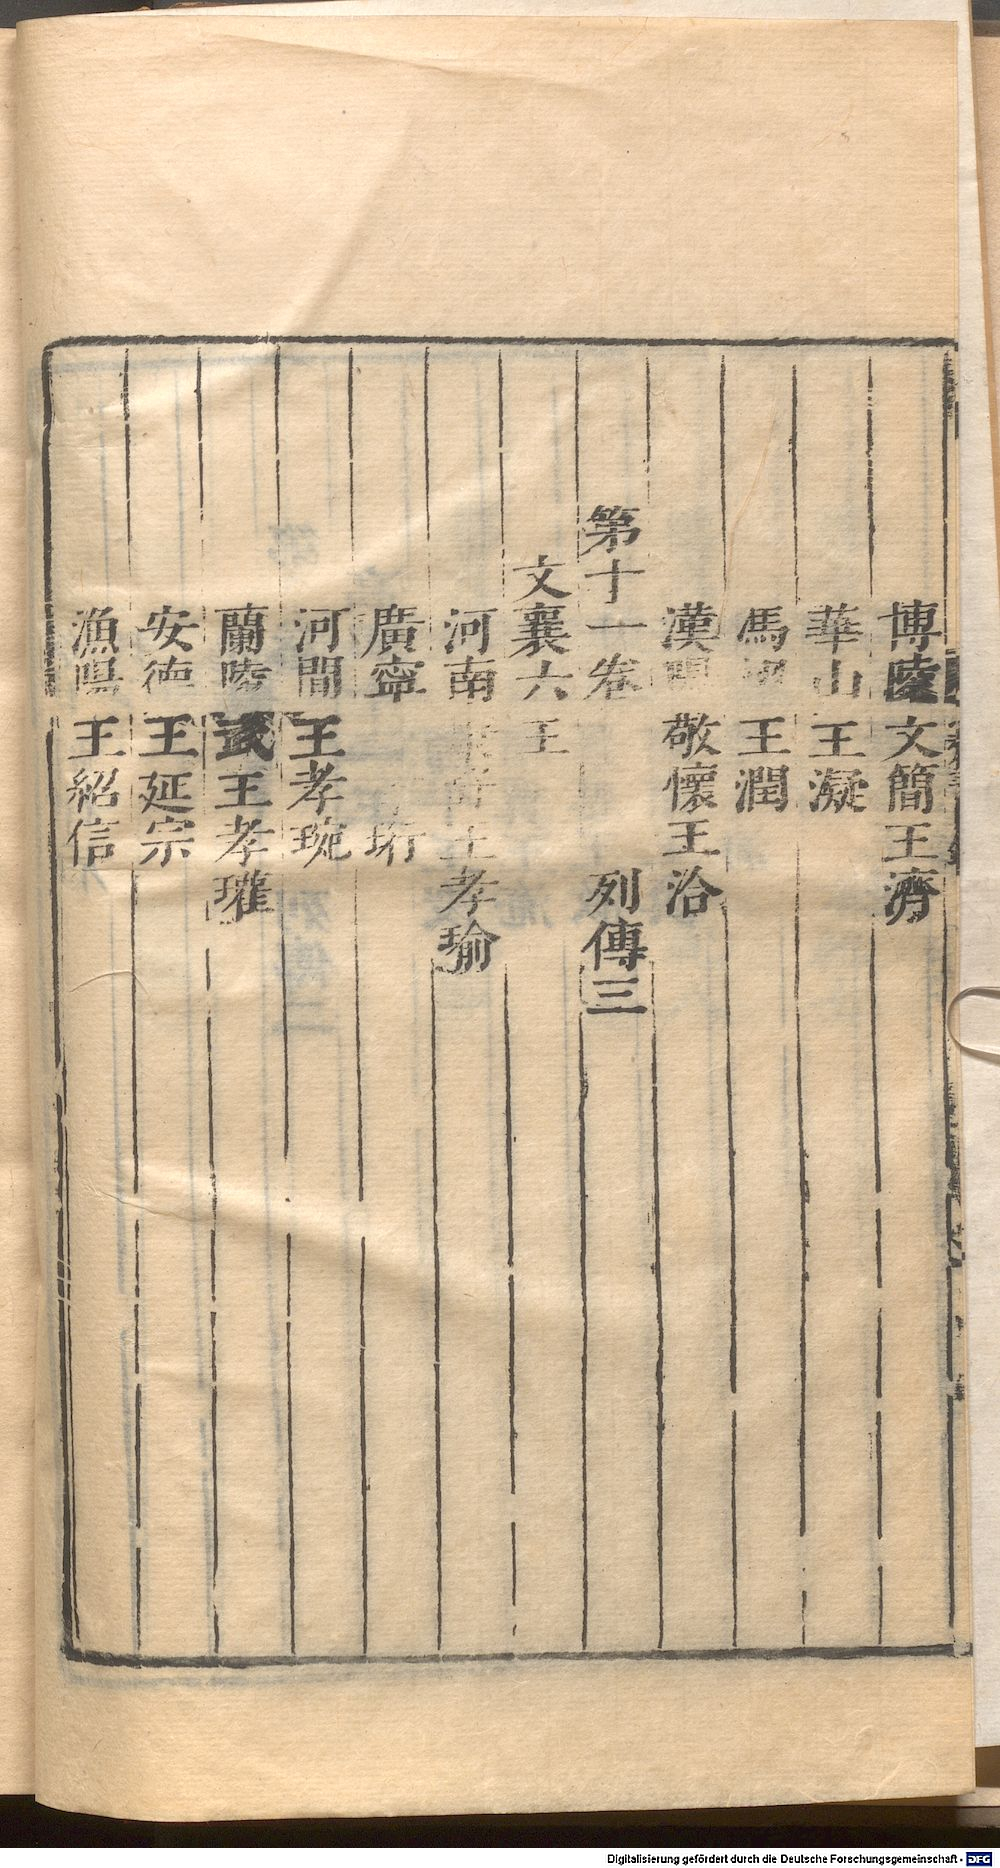 博陵文簡王濟
華山王凝
馮翊王潤
漢陽敬懷王洽
第十一卷 列傳三
文襄六王
河南王孝瑜
廣寧珩
河間王孝琬
蘭陵武王孝瓘
安德王延宗
漁陽王紹信
Digitalisierung gefördert durch die Deutsche Forschungsgemeinschaft - DFG